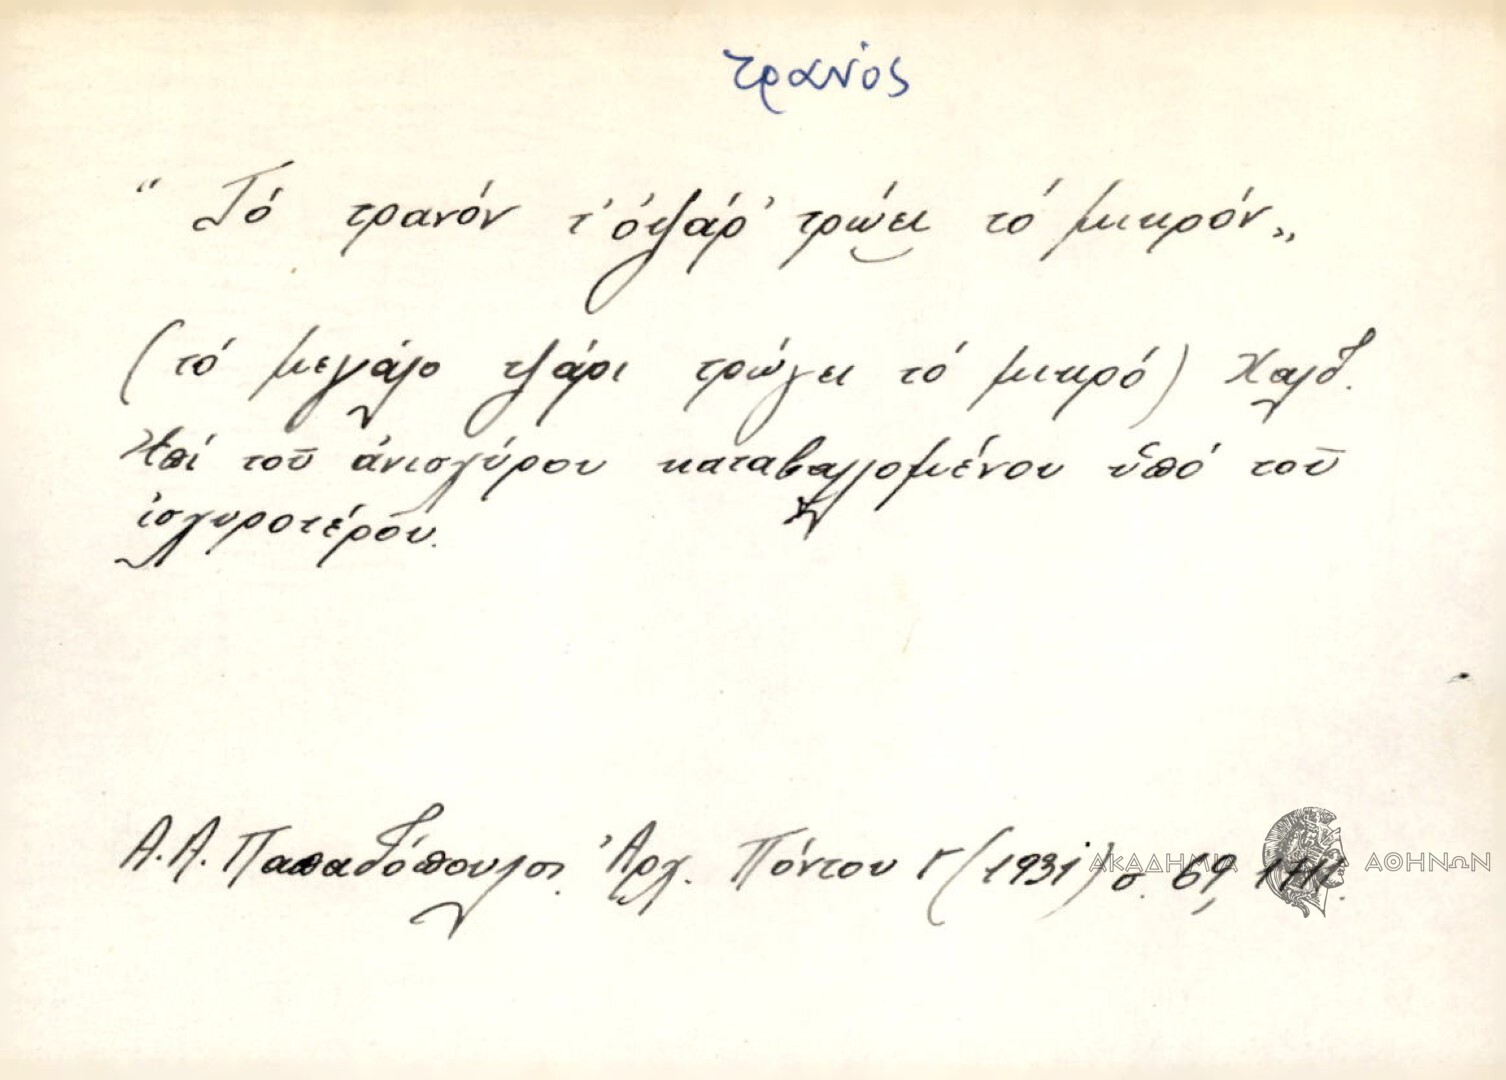 τρανός
“Τό τρανόν τ' ὀψάρ' τρώει τό μικρόν„
(τό μεγάλο ψάρι τρώγει τό μικρό) Χαλδ.
Ἐπί τοῦ ἀνισχύρου καταβαλλομένου ὑπό τοῦ
ἰσχυροτέρου.
Α. Α. Παπαδόπουλος. Ἀρχ. Πόντου Γ (1931) σ. 69,
ΑΚΑΔΗΜΙΑ ΑΘΗΝΩΝ